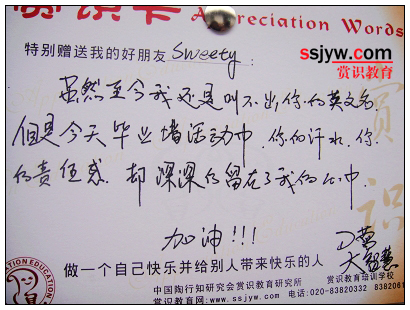 赏识卡
Appreciation Words
特别赠送我的好朋友 Sweety:
ssjyw.com
赏识教育
虽然至今我还是叫不出你的英文名
但是今天毕业墙活动中,你的汗水,你
的责任感,却深深的留在了我的心中
赏识
加油!!!
大智慧
做一个自己快乐并给别人带来快乐的人
中国陶行知研究会赏识教育研究所 赏识教育培训学校
赏识教育网:www.ssjyw.com 电话:020-83820332 8382061
EDUCATION